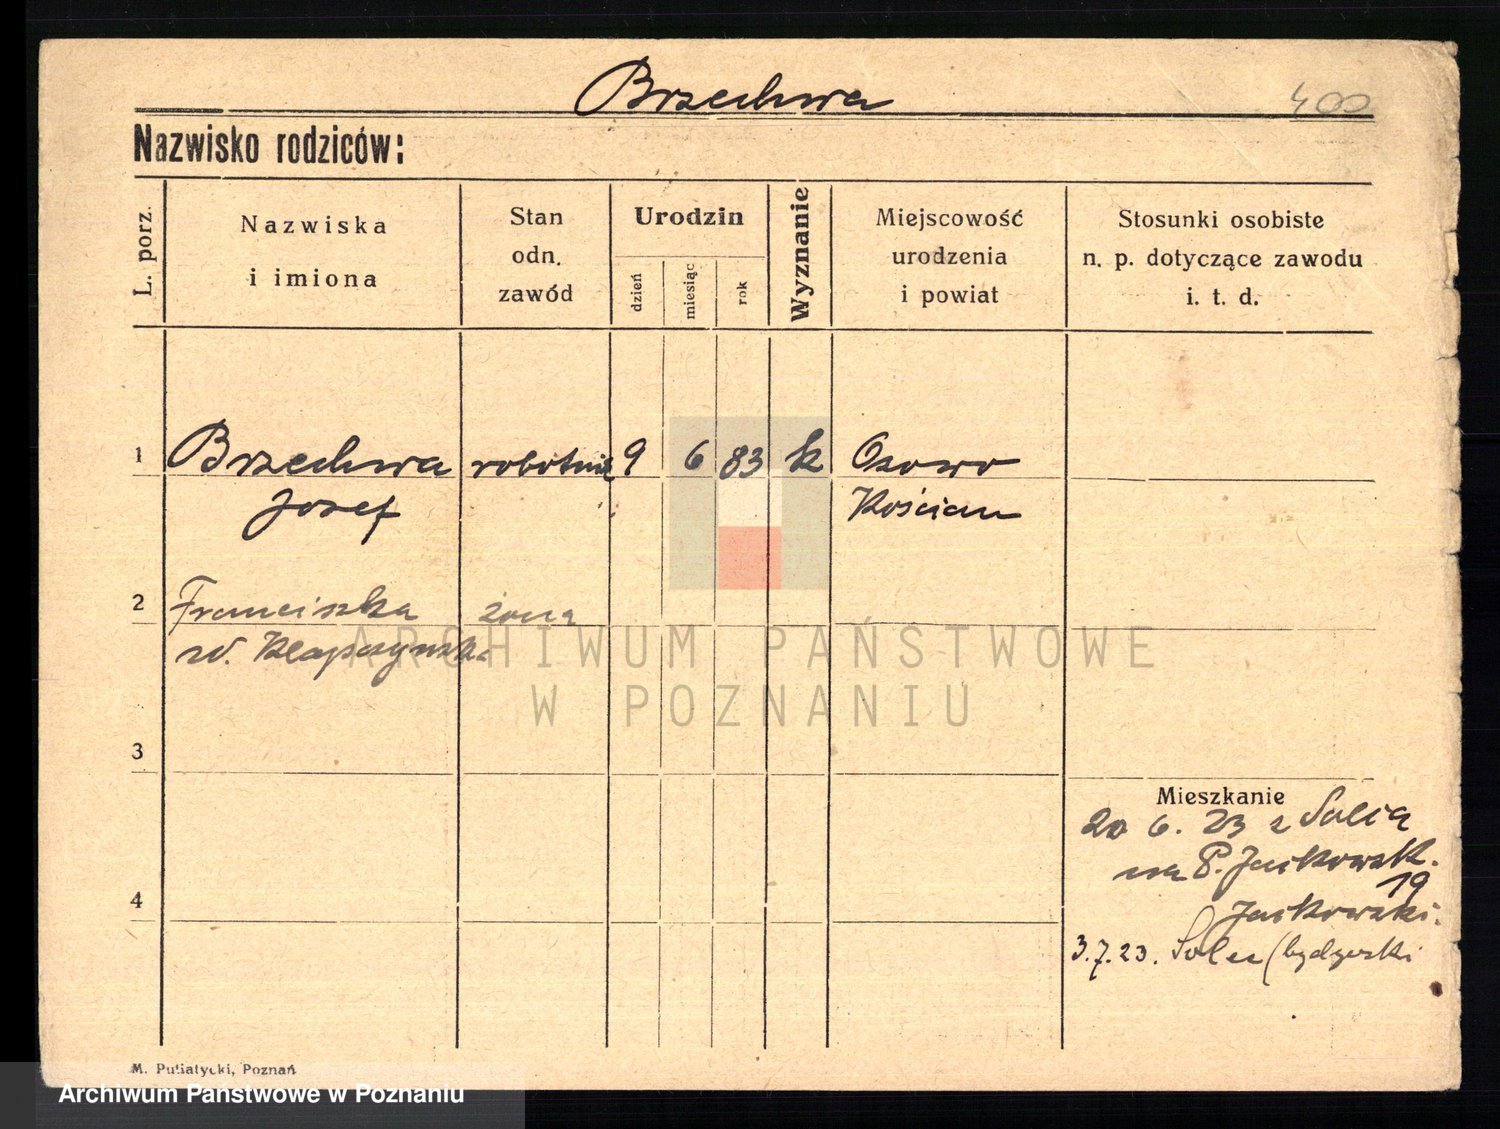 Brzechwa
400
Nazwisko rodziców:
L. porz.
Nazwiska
i imiona
Stan
odn.
zawód
Urodzin
dzień
miesiąc
rok
Wyznanie
Miejscowość
urodzenia
i powiat
Stosunki osobiste
n. p. dotyczące zawodu
i. t. d.
1 Brzechwa robotnik 9 6 83 k Osowo
Josef Kościan
2 Franciszka żona
3
Mieszkanie
20 6. 23 z Solca
na P. Jackowsk.
19
4
Jackowski.
3.7.23. Solec (bydgoski
ARCHIWUM PAŃSTWOWE
W POZNANIU
M. Putiatycki, Poznań
Archiwum Państwowe w Poznaniu